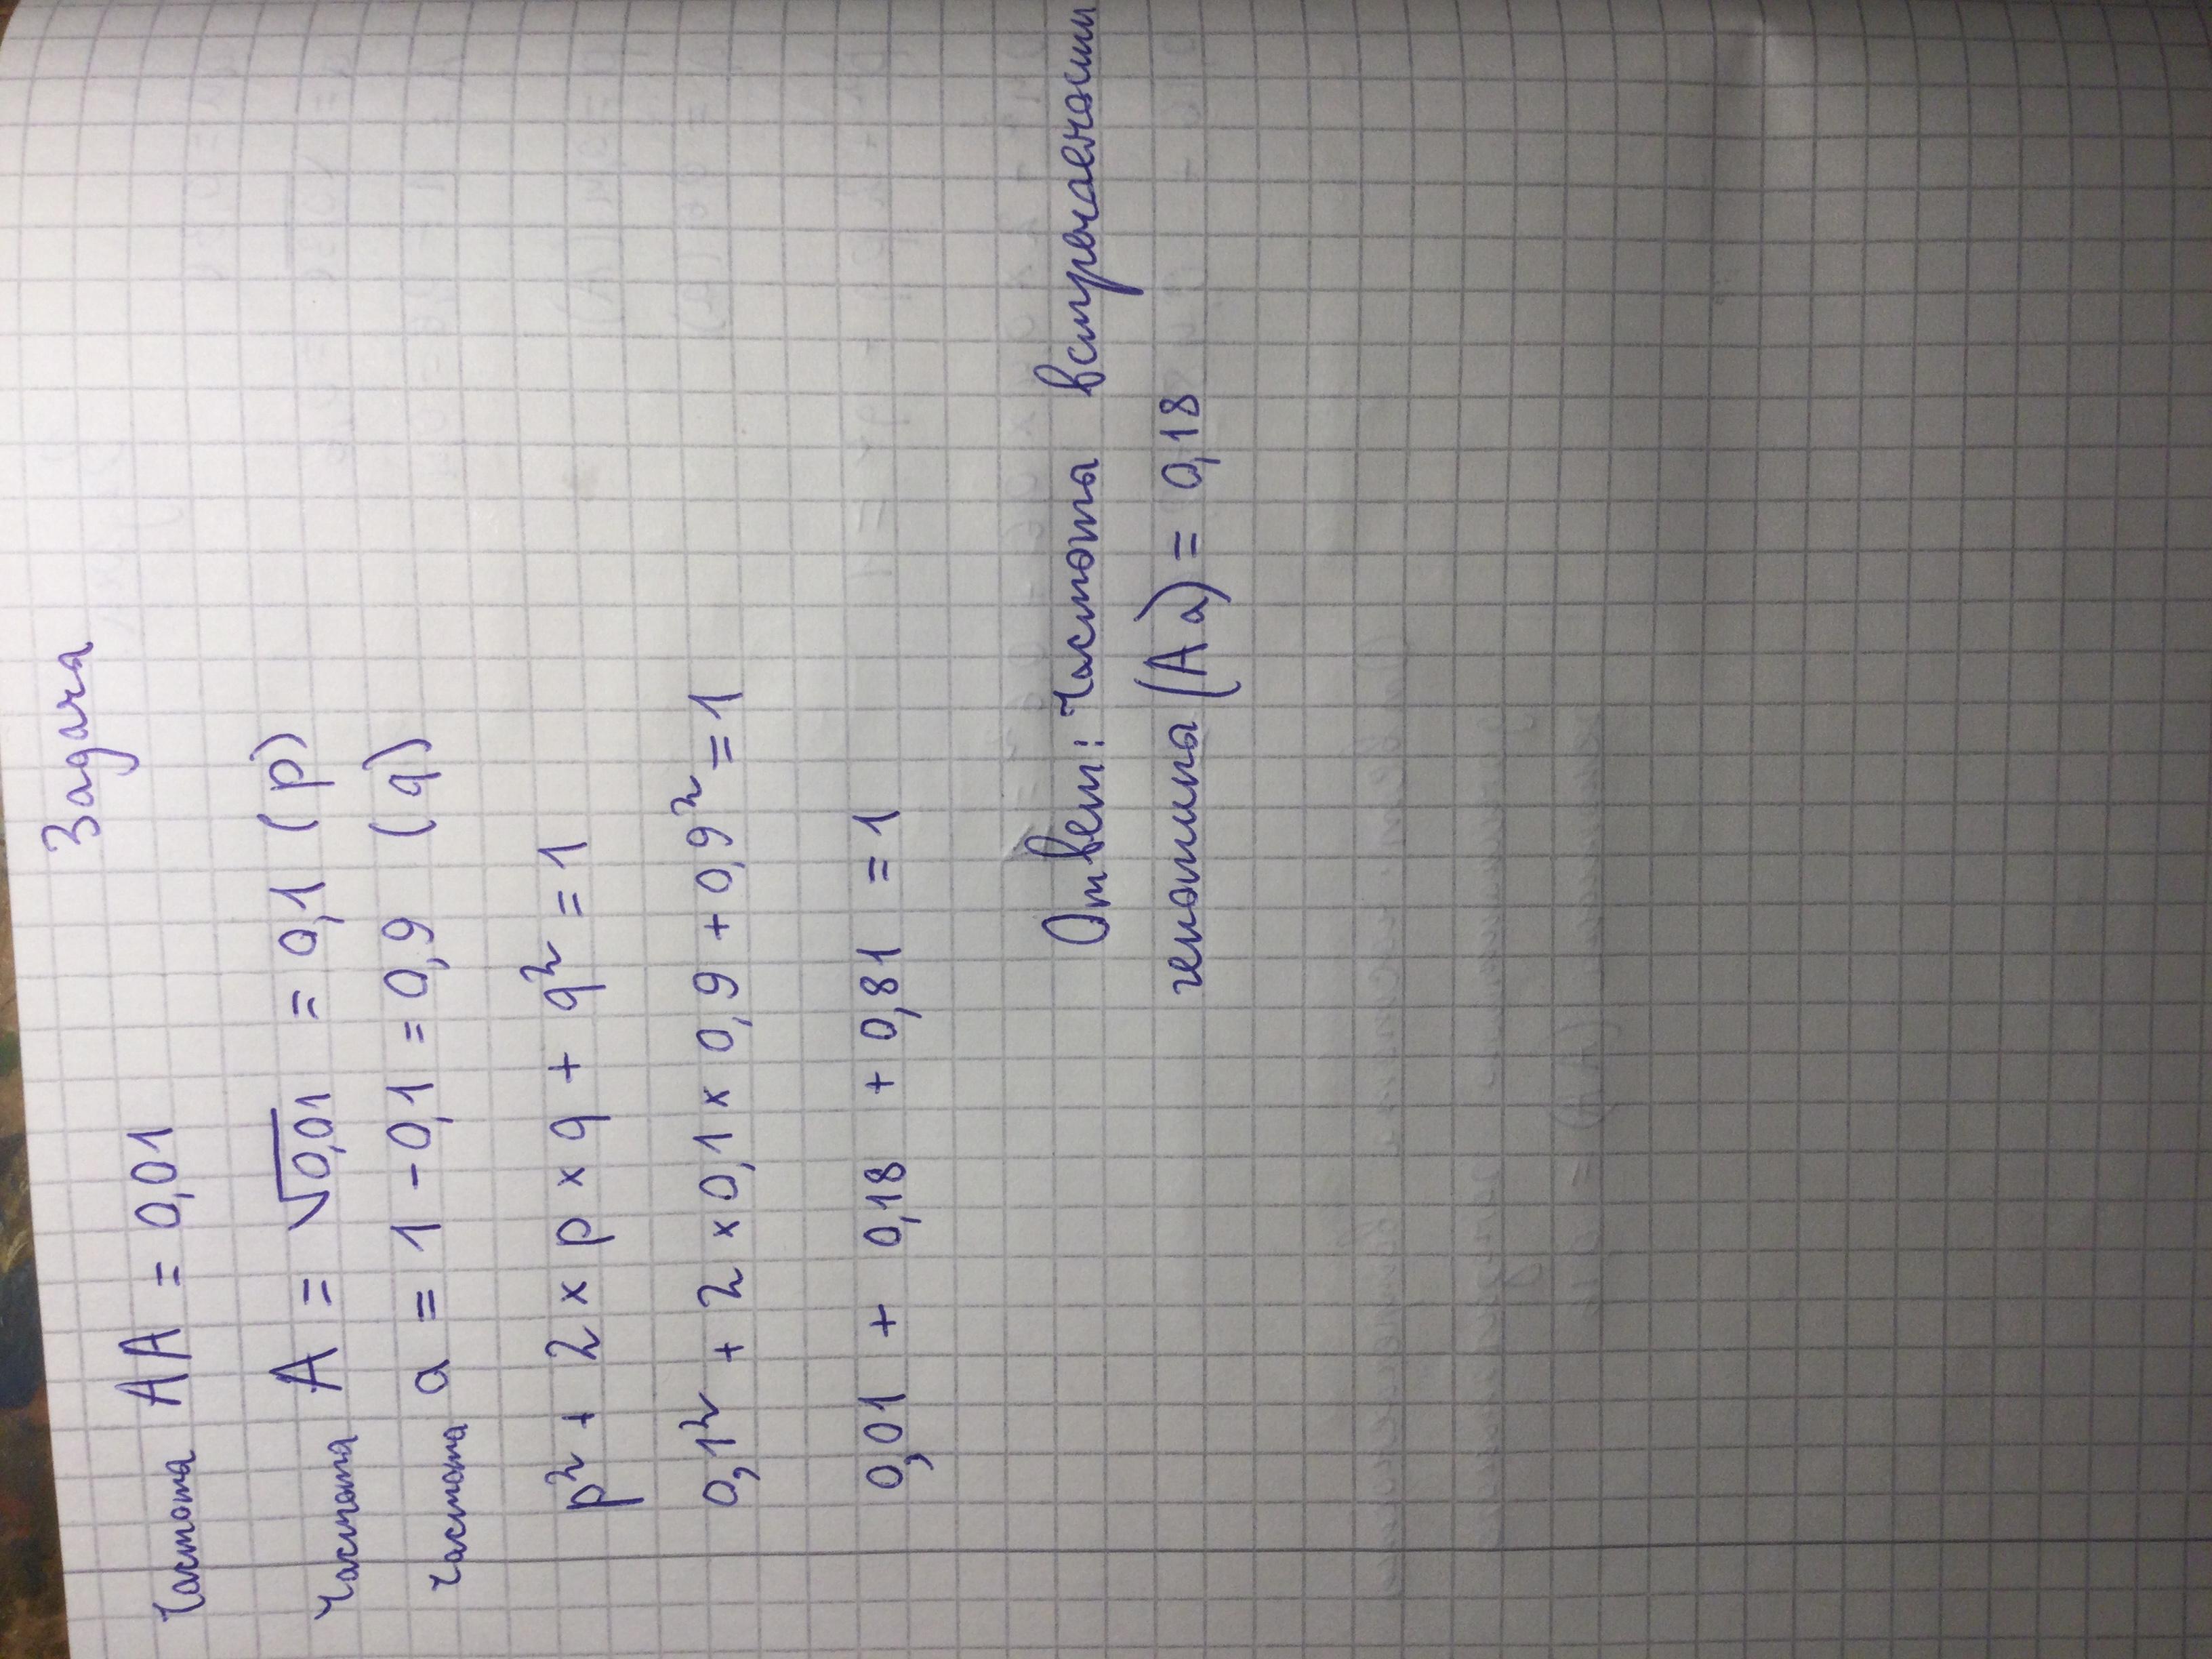 Задача
Частота AA = 0,01
Частота A = √0,01 = 0,1 (p)
Частота a = 1 - 0,1 = 0,9 (q)
p² + 2 × p × q + q² = 1
0,1² + 2 × 0,1 × 0,9 + 0,9² = 1
0,01 + 0,18 + 0,81 = 1
Ответ: Частота встречаемости
генотипа (Aa) = 0,18